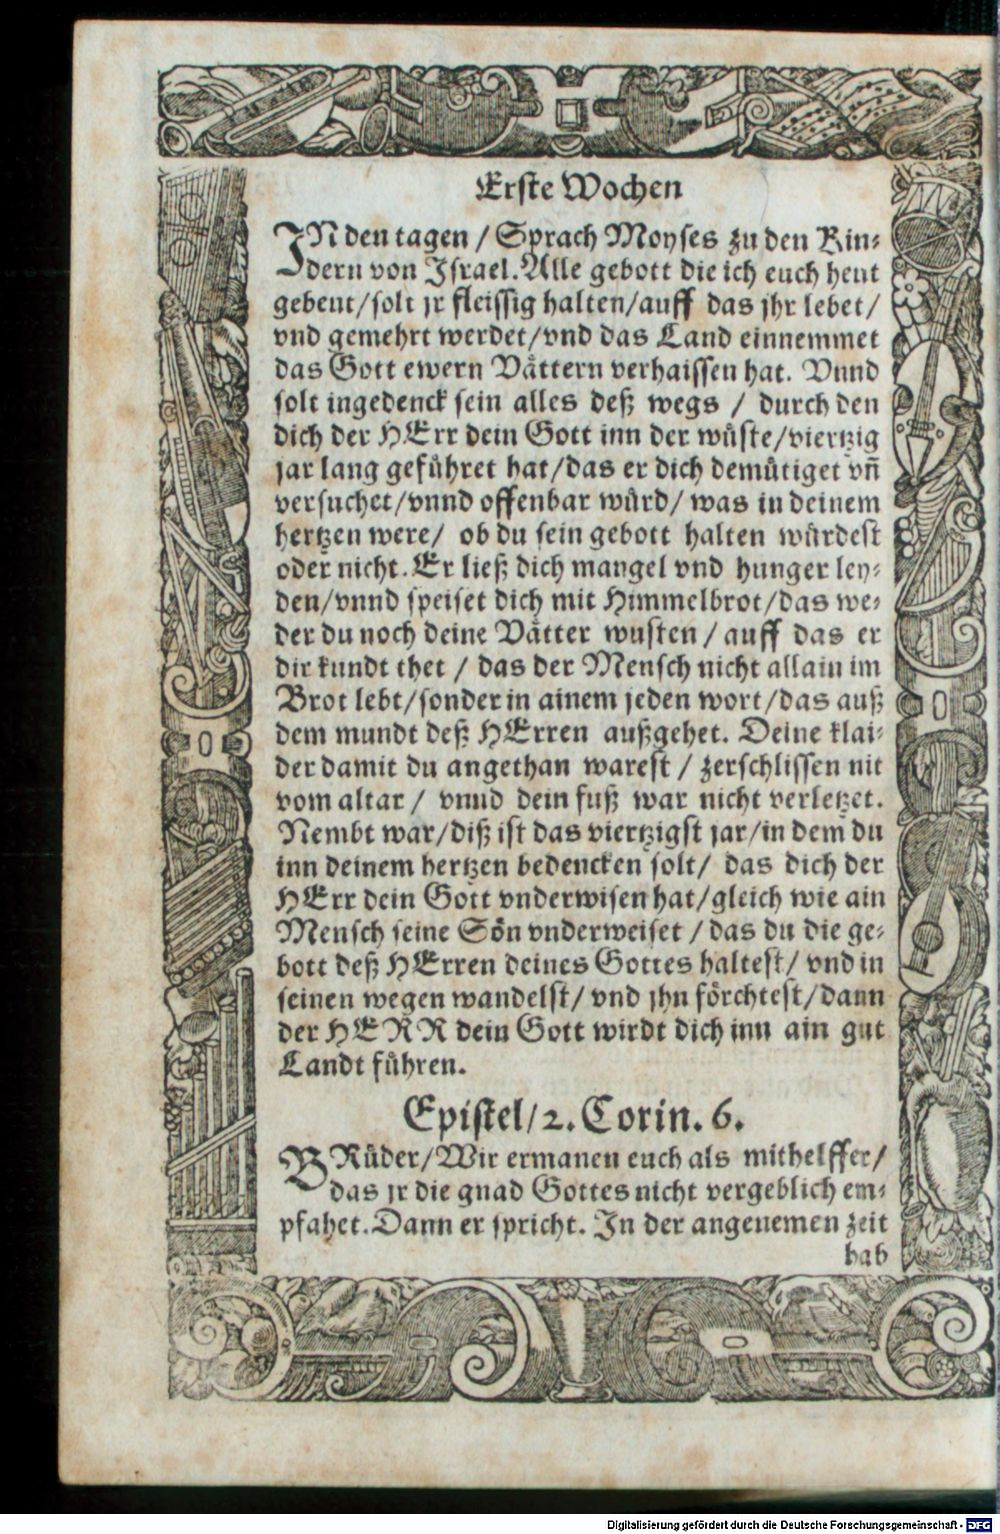 Erste Wochen
IN den tagen / Sprach Moyses zu den Kin⸗
dern von Israel. Alle gebott die ich euch heut
gebeut / solt jr fleissig halten / auff das jhr lebet /
vnd gemehrt werdet / vnd das Land einnemmet
das Gott ewern Vättern verhaissen hat. Vnnd
solt ingedenck sein alles deß wegs / durch den
dich der HErr dein Gott inn der wüste / viertzig
jar lang geführet hat / das er dich demütiget vñ
versuchet / vnnd offenbar würd / was in deinem
hertzen were / ob du sein gebott halten würdest
oder nicht. Er ließ dich mangel vnd hunger ley⸗
den / vnnd speiset dich mit Himmelbrot / das we⸗
der du noch deine Vätter wusten / auff das er
dir kundt thet / das der Mensch nicht allain im
Brot lebt / sonder in ainem jeden wort / das auß
dem mundt deß HErren außgehet. Deine klai⸗
der damit du angethan warest / zerschlissen nit
vom altar / vnnd dein fuß war nicht verletzet.
Nembt war / diß ist das viertzigst jar / in dem du
inn deinem hertzen bedencken solt / das dich der
HErr dein Gott vnderwisen hat / gleich wie ain
Mensch seine Sön vnderweiset / das du die ge⸗
bott deß HErren deines Gottes haltest / vnd in
seinen wegen wandelst / vnd jhn förchtest / dann
der HERR dein Gott wirdt dich inn ain gut
Landt führen.
Epistel / 2. Corin. 6.
BRüder / Wir ermanen euch als mithelffer /
das jr die gnad Gottes nicht vergeblich em⸗
pfahet. Dann er spricht. In der angenemen zeit
hab
Digitalisierung gefördert durch die Deutsche Forschungsgemeinschaft - DFG